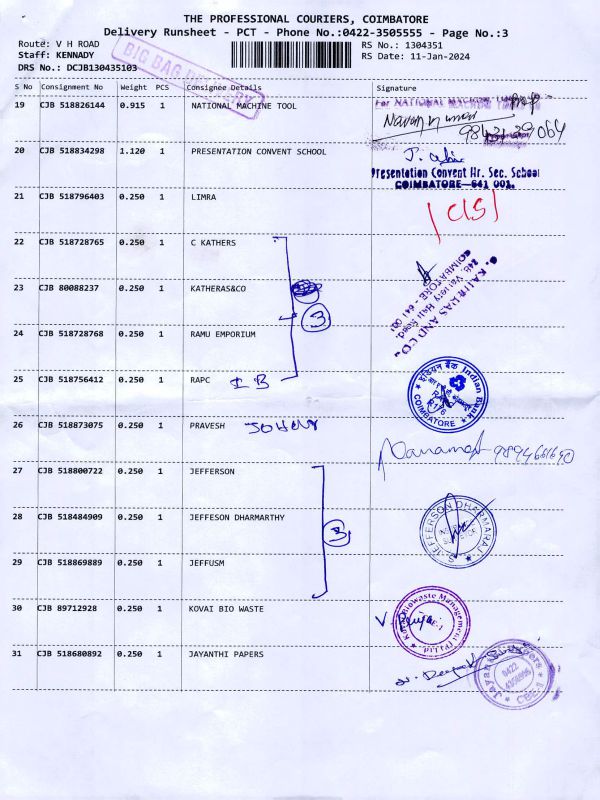 THE PROFESSIONAL COURIERS, COIMBATORE
Delivery Runsheet - PCT - Phone No.:0422-3505555 - Page No.:3
Route: V H ROAD
RS No.: 1304351
Staff: KENNADY
RS Date: 11-Jan-2024
DRS No.: DCJB130435103
BIG BAG DELIVERY
S No Consignment No Weight PCS Consignee Details Signature
19 CJB 518826144 0.915 1 NATIONAL MACHINE TOOL
For NATIONAL MACHINE
20 CJB 518834298 1.120 1 PRESENTATION CONVENT SCHOOL
Presentation Convent Hr. Sec. School
COIMBATORE-641 001.
21 CJB 518796403 0.250 1 LIMRA
22 CJB 518728765 0.250 1 C KATHERS
23 CJB 80088237 0.250 1 KATHERAS&CO
3
COIMBATORE - 641 001
24 CJB 518728768 0.250 1 RAMU EMPORIUM
25 CJB 518756412 0.250 1 RAPC IB
इंडियन बैंक Indian Bank
COIMBATORE
26 CJB 518873075 0.250 1 PRAVESH
27 CJB 518800722 0.250 1 JEFFERSON
28 CJB 518484909 0.250 1 JEFFESON DHARMARTHY
3
S. JEFFERSON DHARMARAJ
29 CJB 518869889 0.250 1 JEFFUSM
30 CJB 89712928 0.250 1 KOVAI BIO WASTE
Kovai Biowaste Management (P) Ltd
31 CJB 518680892 0.250 1 JAYANTHI PAPERS
0422
CBE-1